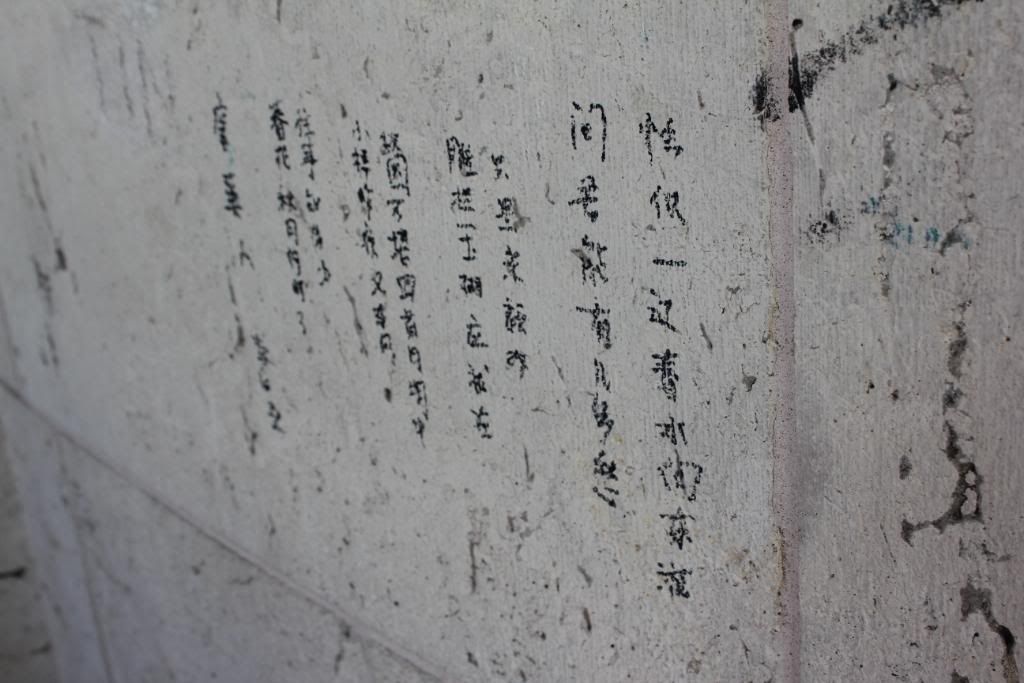 虞美人
春花秋月何时了
往事知多少
小楼昨夜又东风
故国不堪回首月明中
雕栏玉砌应犹在
只是朱颜改
问君能有几多愁
恰似一江春水向东流